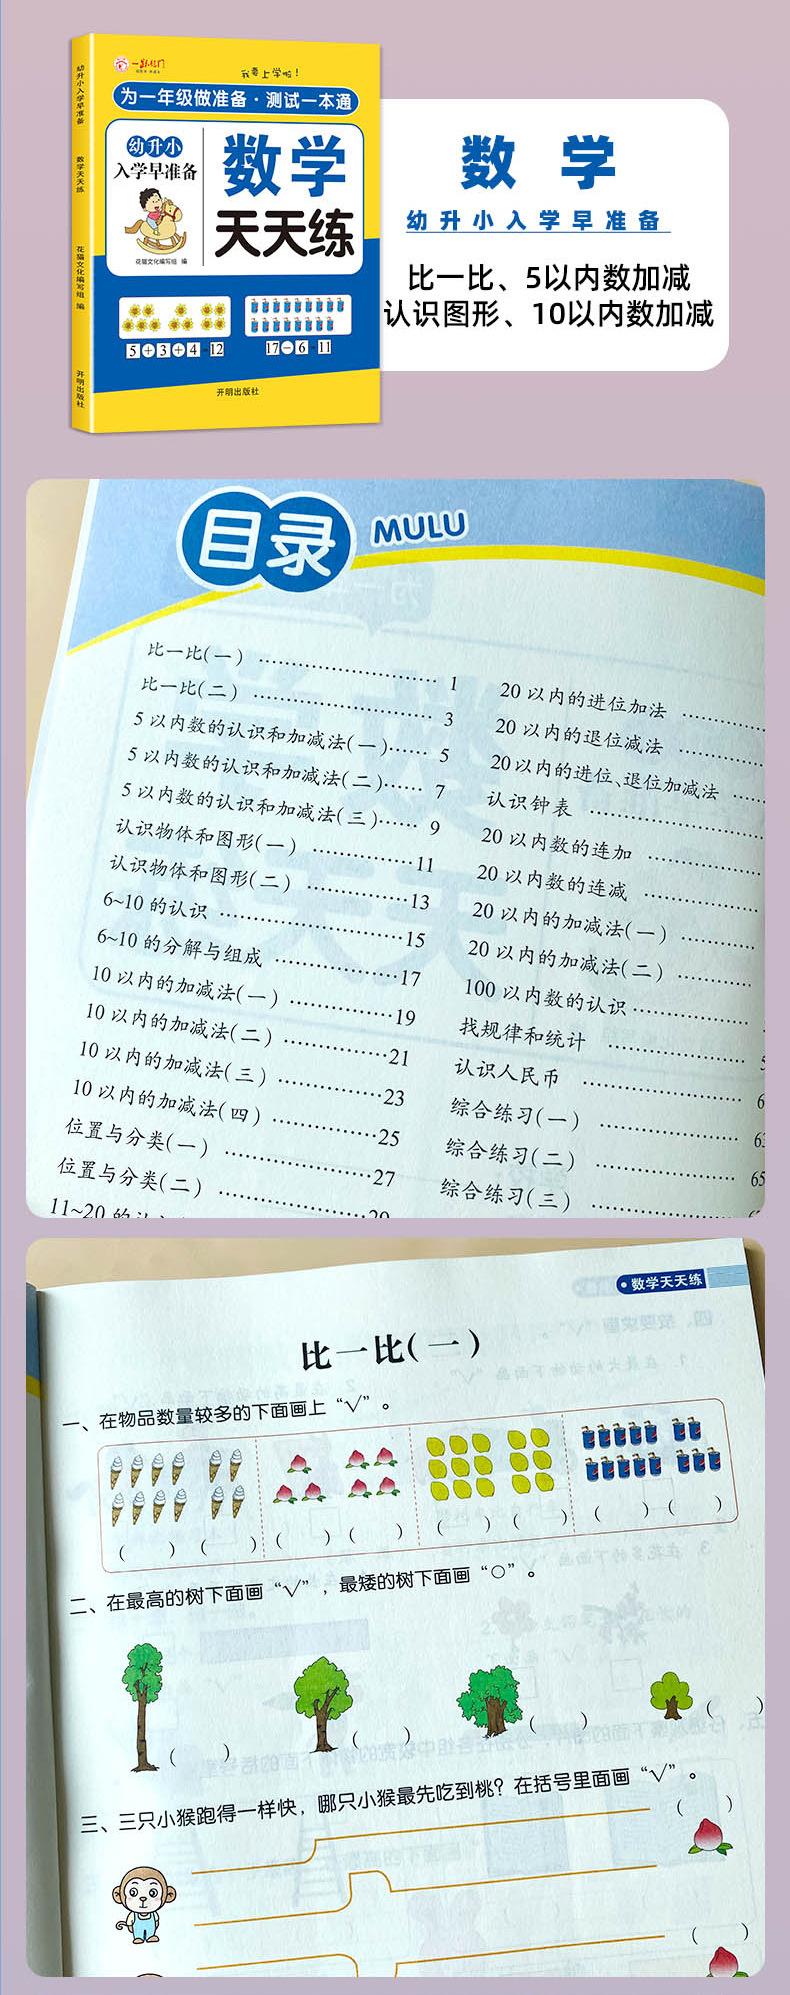 一跃龙门
我要上学啦！
为一年级做准备·测试一本通
幼升小
入学早准备
数学
天天练
花猫文化编写组 编
5+3+4=12
17-6=11
开明出版社
幼升小入学早准备
数学天天练
花猫文化编写组 编
开明出版社
数学
幼升小入学早准备
比一比、5以内数加减
认识图形、10以内数加减
目录 MULU
比一比(一) 1
比一比(二) 3
5以内数的认识和加减法(一) 5
5以内数的认识和加减法(二) 7
5以内数的认识和加减法(三) 9
认识物体和图形(一) 11
认识物体和图形(二) 13
6~10的认识 15
6~10的分解与组成 17
10以内的加减法(一) 19
10以内的加减法(二) 21
10以内的加减法(三) 23
10以内的加减法(四) 25
位置与分类(一) 27
位置与分类(二)
11~20
20以内的进位加法
20以内的退位减法
20以内的进位、退位加减法
认识钟表
20以内数的连加
20以内数的连减
20以内的加减法(一)
20以内的加减法(二)
100以内数的认识
找规律和统计
认识人民币
综合练习(一) 63
综合练习(二) 65
综合练习(三)
数学天天练
比一比(一)
一、在物品数量较多的下面画上“√”。
( ) ( ) ( ) ( ) ( ) ( ) ( ) ( )
二、在最高的树下面画“√”，最矮的树下面画“○”。
( ) ( ) ( ) ( )
三、三只小猴跑得一样快，哪只小猴最先吃到桃？在括号里面画“√”。
( )
( )